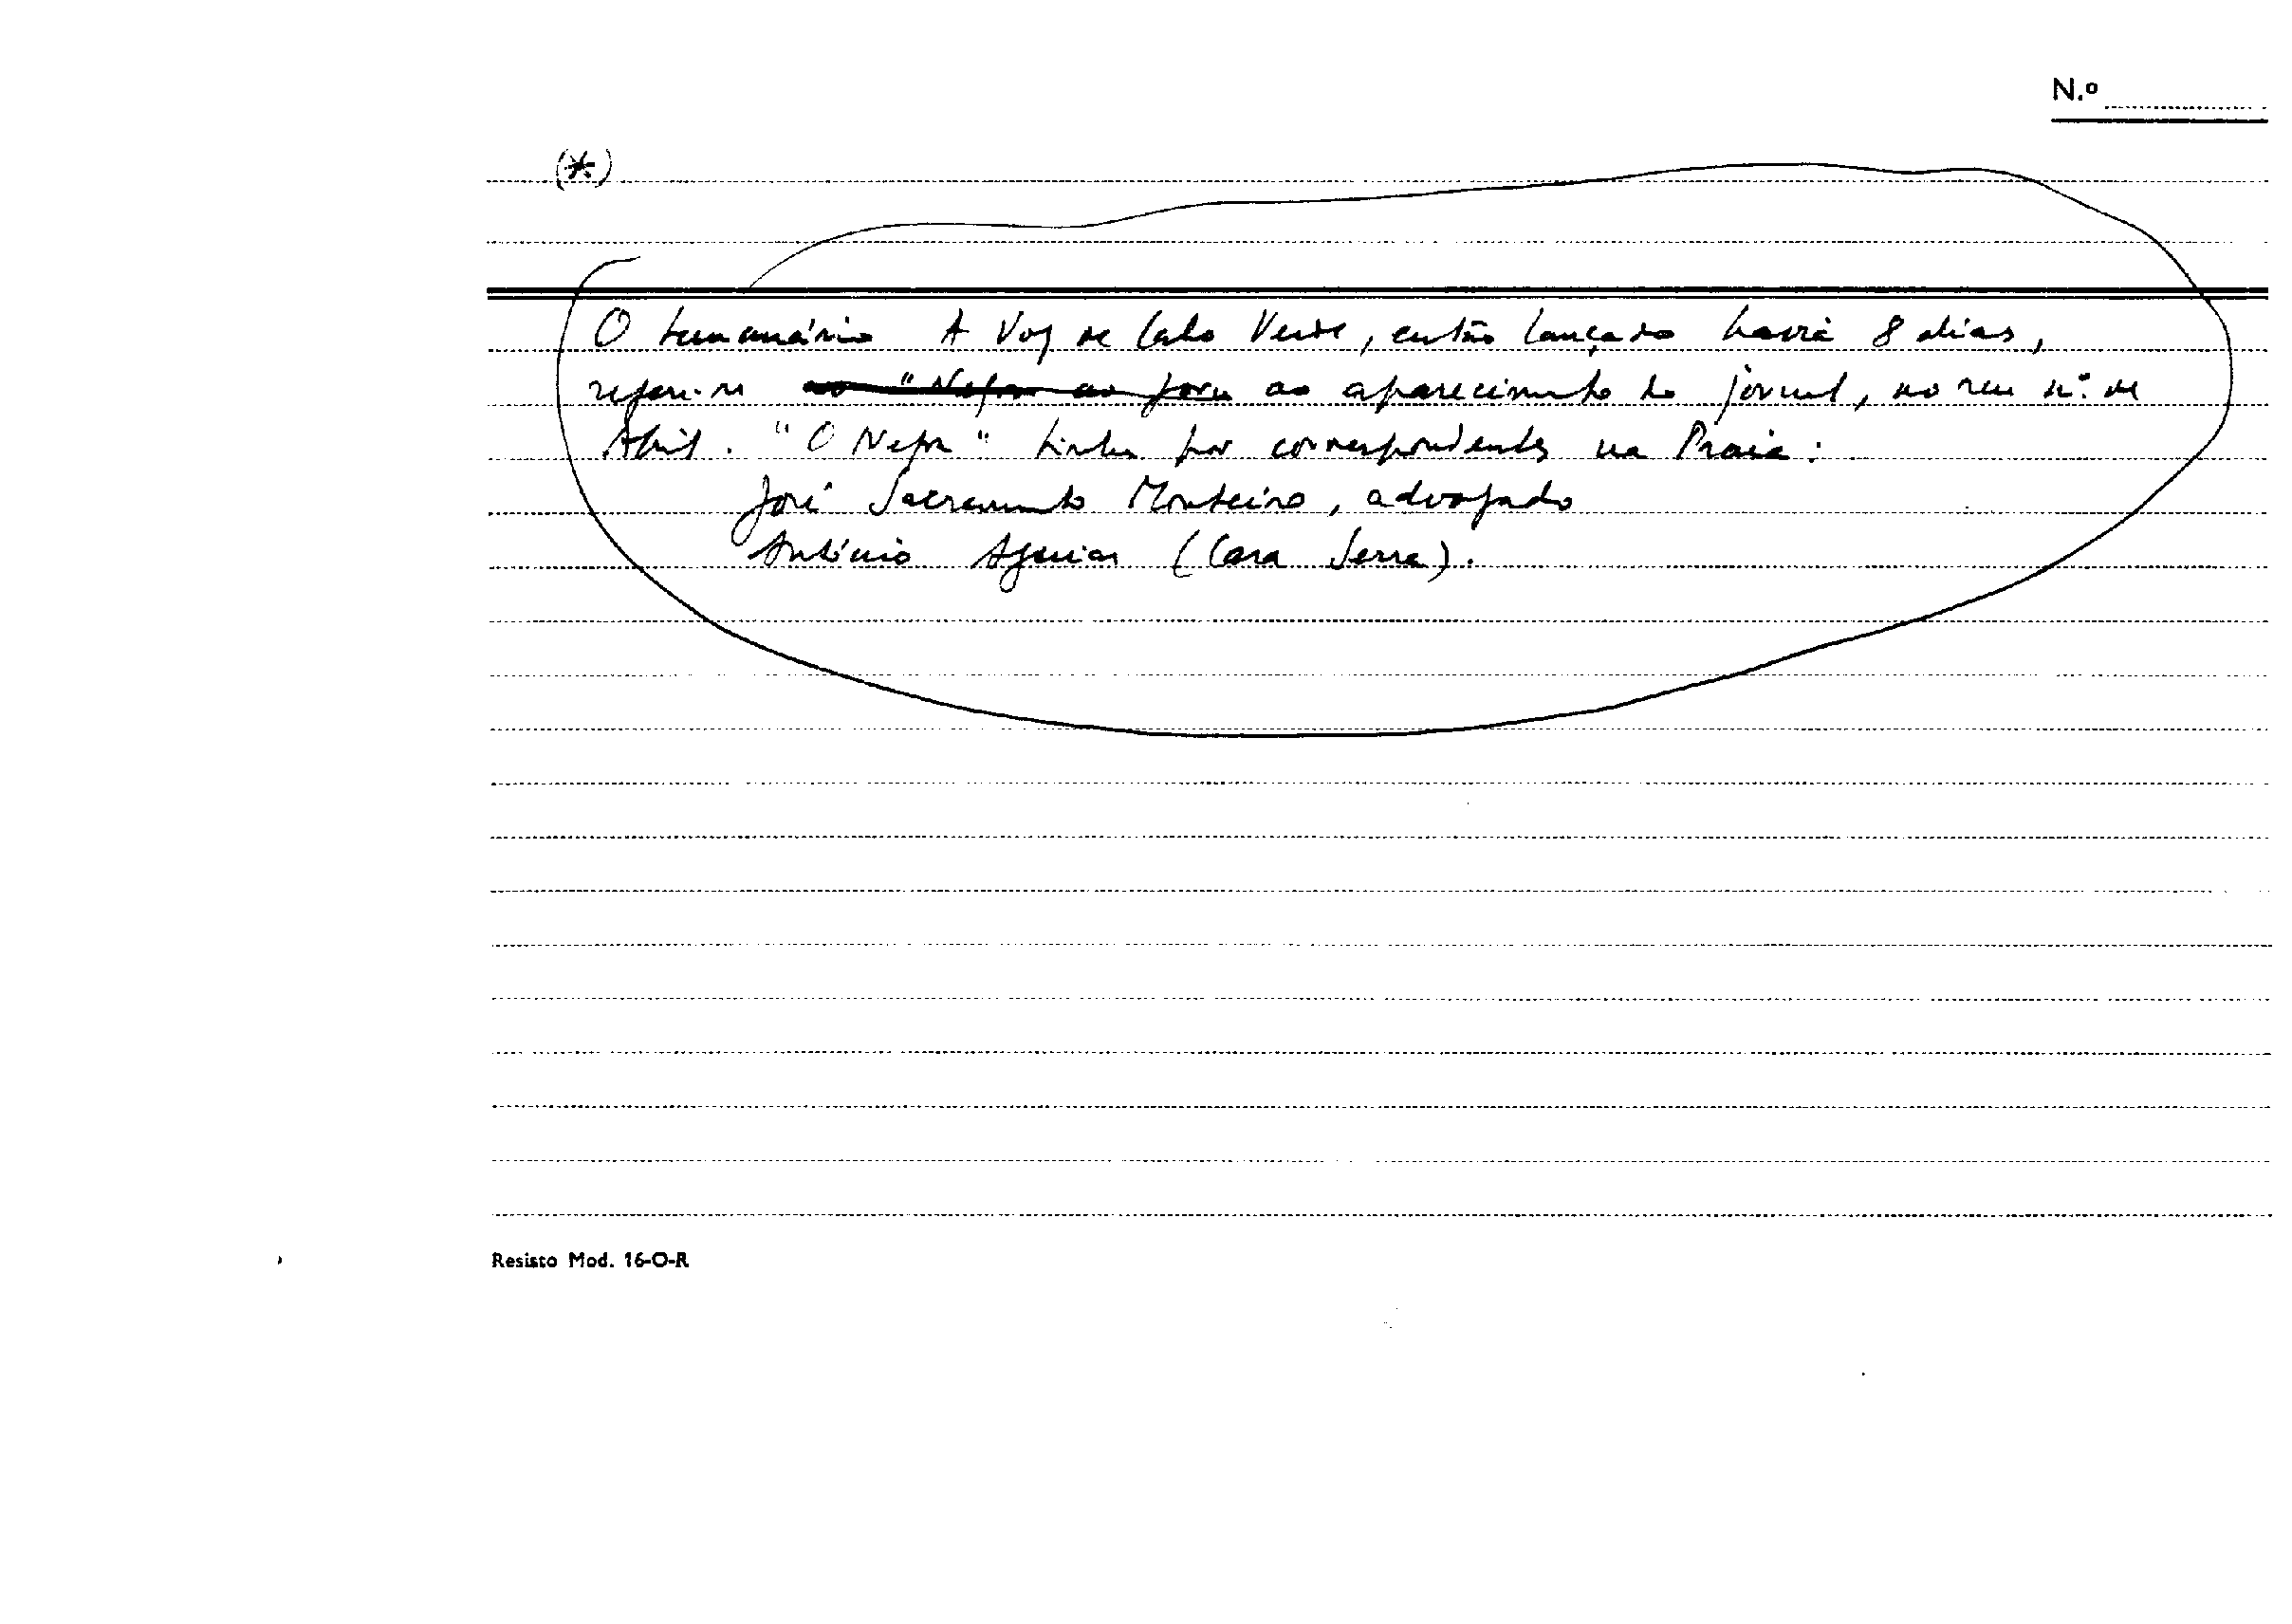 N.º
(*)
O semanário A Voz de Cabo Verde, então lançado havia 8 dias,
refere-se ao "Negro ao ao aparecimento do jornal, no seu n.º de
Abril. "O Negro" tinha por correspondentes na Praia:
José Sacramento Monteiro, advogado
António Aguiar (Casa Serra).
Resisto Mod. 16-O-R